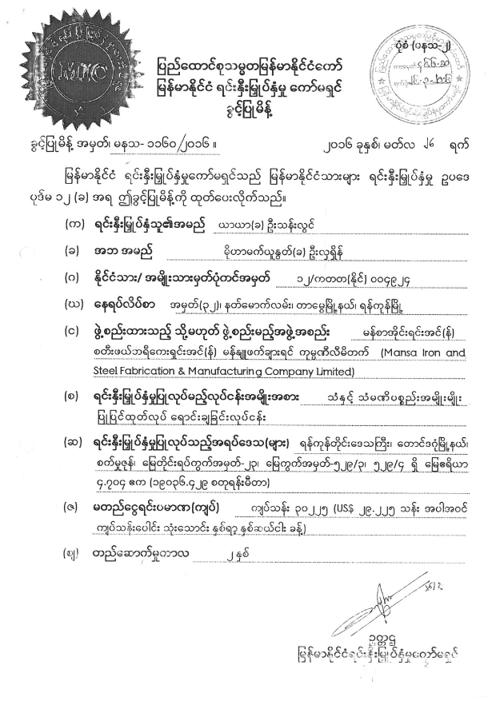 MIC
ပုံစံ (ပနသ-၂)
ပြည်ထောင်စုသမ္မတမြန်မာနိုင်ငံတော်
မြန်မာနိုင်ငံ ရင်းနှီးမြှုပ်နှံမှု ကော်မရှင်
ခွင့်ပြုမိန့်
ခွင့်ပြုမိန့် အမှတ်၊ မနသ- ၁၁၆၀/၂၀၁၆ ။
၂၀၁၆ ခုနှစ်၊ မတ်လ ၂၆ ရက်
မြန်မာနိုင်ငံ ရင်းနှီးမြှုပ်နှံမှုကော်မရှင်သည် မြန်မာနိုင်ငံသားများ ရင်းနှီးမြှုပ်နှံမှု ဥပဒေ
ပုဒ်မ ၁၂ (ခ) အရ ဤခွင့်ပြုမိန့်ကို ထုတ်ပေးလိုက်သည်။
(က) ရင်းနှီးမြှုပ်နှံသူ၏အမည် ယာယာ(ခ) ဦးသန်းလွင်
(ခ) အဘ အမည် မိုဟာမက်ယူနွတ်(ခ) ဦးလှရှိန်
(ဂ) နိုင်ငံသား/ အမျိုးသားမှတ်ပုံတင်အမှတ် ၁၂/ကတတ(နိုင်) ၀၀၄၉၂၄
(ဃ) နေရပ်လိပ်စာ အမှတ်(၃၂)၊ နတ်မောက်လမ်း၊ တာမွေမြို့နယ်၊ ရန်ကုန်မြို့
(င) ဖွဲ့စည်းထားသည့် သို့မဟုတ် ဖွဲ့စည်းမည့်အဖွဲ့အစည်း မန်စာအိုင်းရင်းအင်(န်)
စတီးဖယ်ဘရိကေးရှင်းအင်(န်) မန်နူဖက်ချားရင် ကုမ္ပဏီလီမိတက် (Mansa Iron and
Steel Fabrication & Manufacturing Company Limited)
(စ) ရင်းနှီးမြှုပ်နှံမှုပြုလုပ်မည့်လုပ်ငန်းအမျိုးအစား သံနှင့် သံမဏိပစ္စည်းအမျိုးမျိုး
ပြုပြင်ထုတ်လုပ် ရောင်းချခြင်းလုပ်ငန်း
(ဆ) ရင်းနှီးမြှုပ်နှံမှုပြုလုပ်သည့်အရပ်ဒေသ(များ) ရန်ကုန်တိုင်းဒေသကြီး၊ တောင်ဒဂုံမြို့နယ်၊
စက်မှုဇုန်၊ မြေတိုင်းရပ်ကွက်အမှတ်-၂၃၊ မြေကွက်အမှတ်-၅၂၉/၃၊ ၅၂၉/၄ ရှိ မြေဧရိယာ
၄.၇၀၄ ဧက (၁၉၀၃၆.၄၂၉ စတုရန်းမီတာ)
(ဇ) မတည်ငွေရင်းပမာဏ(ကျပ်) ကျပ်သန်း ၃၀၂၂၅ (US$ ၂၉.၂၂၅ သန်း အပါအဝင်
ကျပ်သန်းပေါင်း သုံးသောင်း နှစ်ရာ့ နှစ်ဆယ်ငါး ခန့်)
(ဈ) တည်ဆောက်မှုကာလ ၂ နှစ်
ဥက္ကဋ္ဌ
မြန်မာနိုင်ငံရင်းနှီးမြှုပ်နှံမှုကော်မရှင်